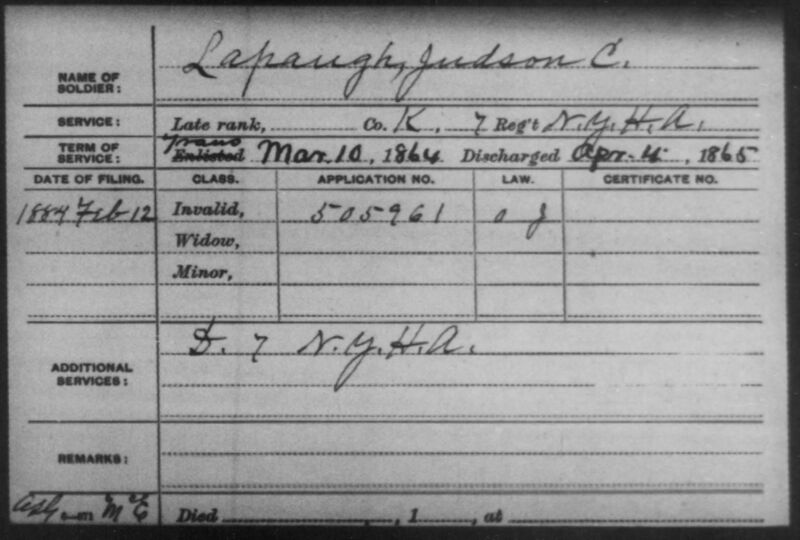 NAME OF SOLDIER: Lapaugh, Judson C.
SERVICE: Late rank, Co. K, 7 Reg't N.Y.H.A.
TERM OF SERVICE: Trans Enlisted Mar. 10, 1864 Discharged Apr. 4, 1865
DATE OF FILING. CLASS. APPLICATION NO. LAW. CERTIFICATE NO.
1884 Feb 12 Invalid, 505961
Widow,
Minor,
ADDITIONAL SERVICES: D. 7 N.Y.H.A.
REMARKS:
Died , 1 , at